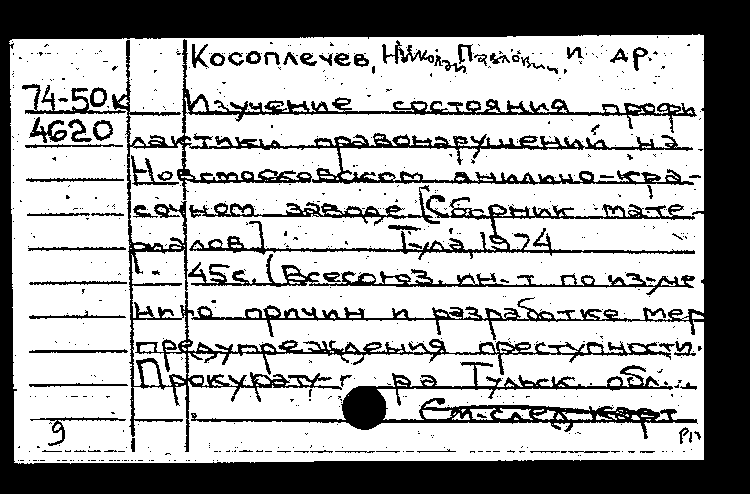 Косоплечев, Николай Павлович и др.
74-50.к Изучение состояния профи-
4620 лактики правонарушений на
Новомосковском анилино-кра-
сочном заводе [Сборник мате-
риалов]. Тула, 1974
45с. (Всесоюз. ин-т по изуче-
нию причин и разработке мер
предупреждения преступности.
Прокурату- ра Тульск. обл...
См. след, карт
9